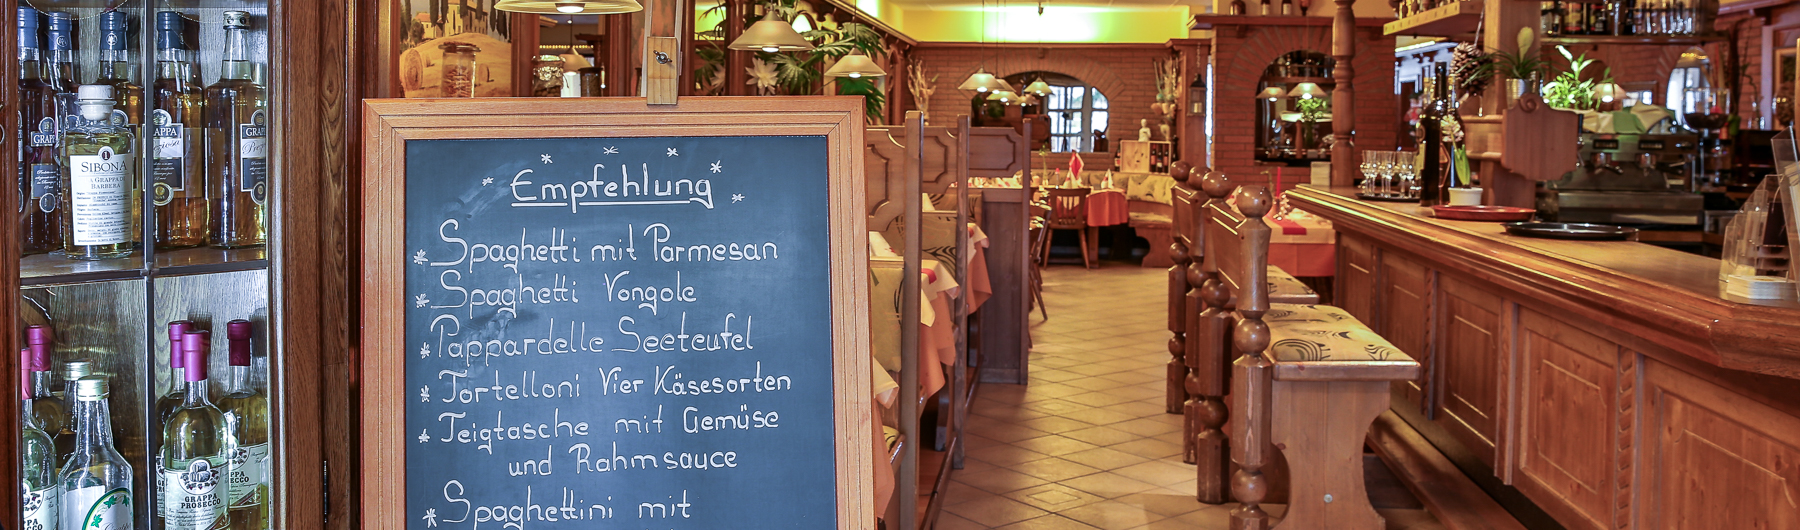 Empfehlung
* Spaghetti mit Parmesan
* Spaghetti Vongole
* Pappardelle Seeteufel
* Tortelloni Vier Käsesorten
* Teigtasche mit Gemüse
und Rahmsauce
* Spaghettini mit
SIBONA
BARBERA
GRAPPA
PROSECCO